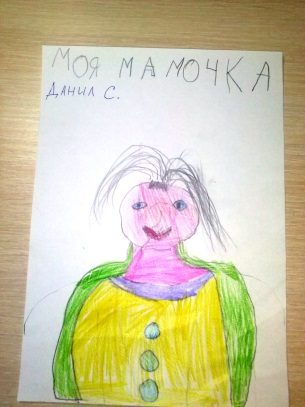 МОЯ МАМОЧКА
ДАНИЛ С.